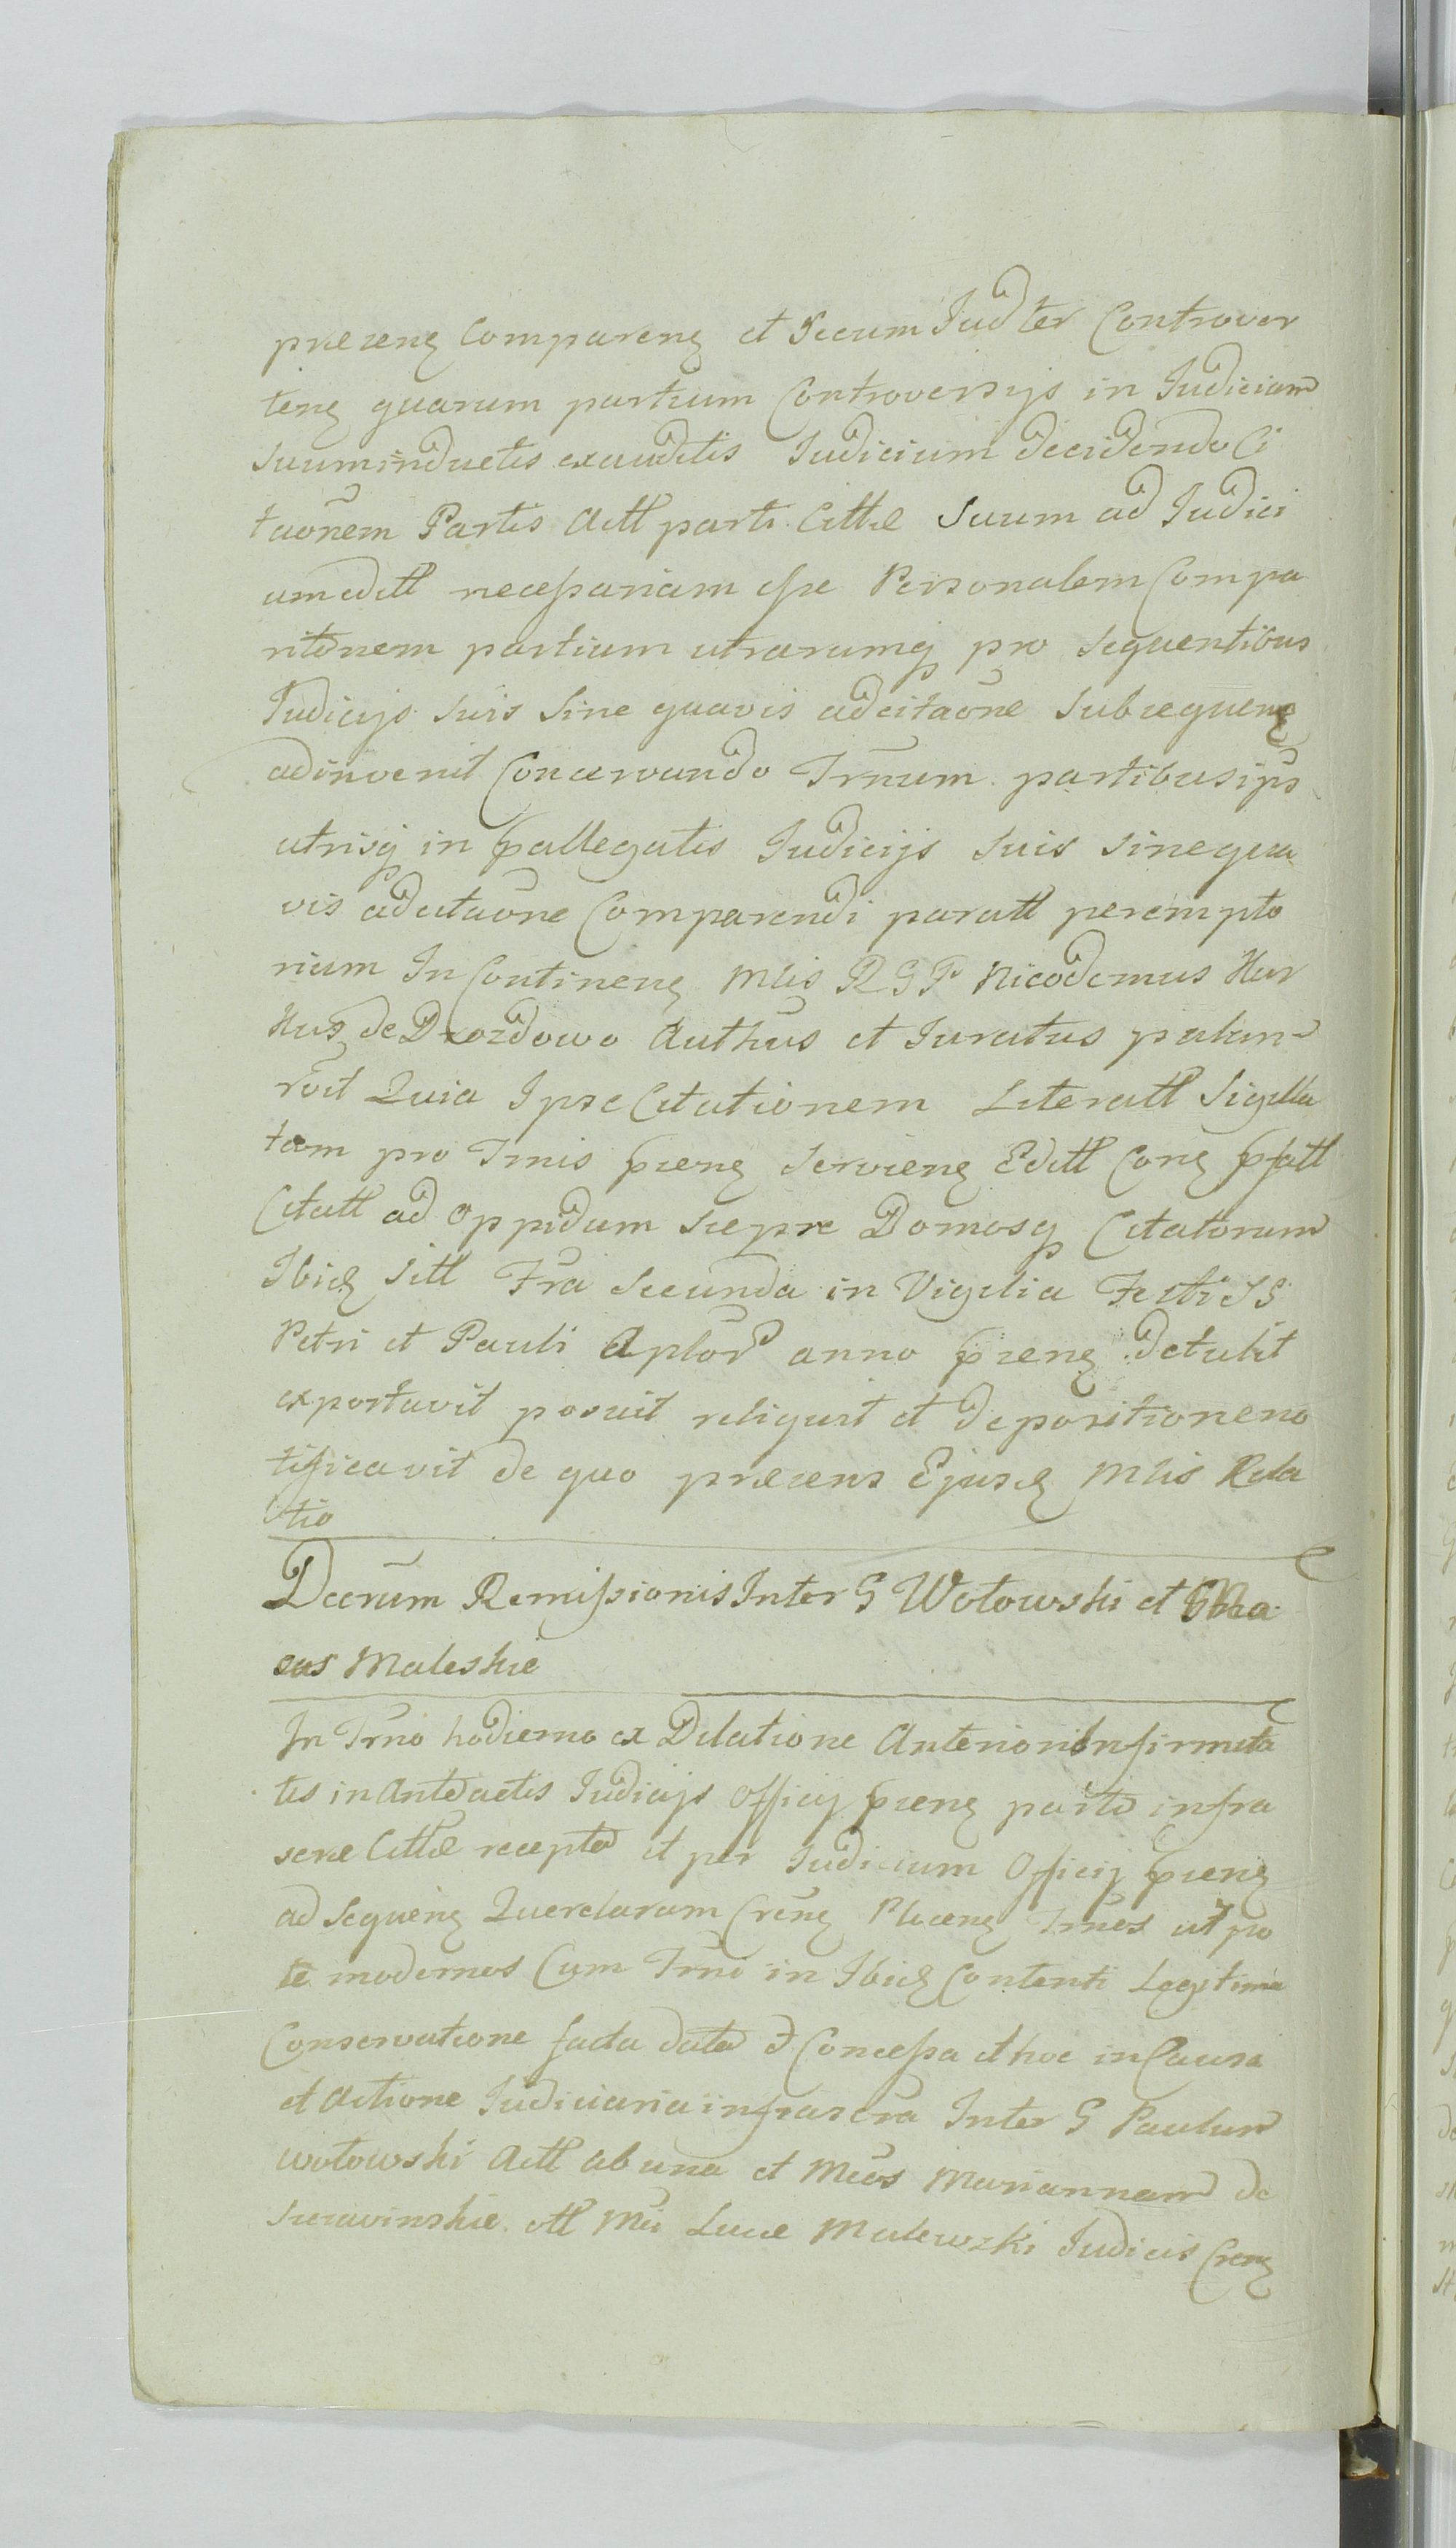 præsenς Comparenς et secum Judter Controver
tenς quarum partium Controversijs in Judicium
suum inductis exauditis Judicium decidendo Ci
taõnem Partis Actt parti Cittæ Suum ad Judici
um editt necessariam esse Personalem Compa
ritõnem partium utrarumq pro sequentibus
Judicijs suis Sine quavis adcitaõne subsequenς
adinvenit Conservando Trñum partibus ips
utrisq in pallegatis Judicijs suis sine qua
vis adcitaõne Comparendi paratt perempto
rium In Continenς Mlis R G P Nicodemus Kur
Kus de Drozdowo Authus et Juratus palam
rvit Quia Ipse Citationem Literatt Sigilla
tam pro Trnis prenς servienς Editt Conς pfatt
Citatt ad Oppidum Sæpe Domosq Citatorum
Ibidς sitt Fra Secunda in Vigilia Festi SS
Petri et Pauli Aplor anno prenς detulit
exportavit posuit reliquit et depositione no
tificavit de quo præsens Ejusdς Mlis Rela
tio
Decrum Remissionis Inter G Wotowski et Ma
sas Maleskie
In Trño hodierno ex Dilatione Anterior Infirmita
tis in Antedactis Judicijs Officij prenς parte infra
scræ Cittæ recepta et per Judicium Officij prenς
ad sequenς Querelarum Crenς Placenς Trnos utpo
te modernos Cum Trni in Ibidς Contenti Legitima
Conservatione facta data et Concessa et hoc in Causa
et Actione Judiciaria infrascra Inter G Paulum
wotowski Actt ab una et Mcos Mariannam de
Szczawinskie ott Mci Lucæ Malewski Judicis Crenς